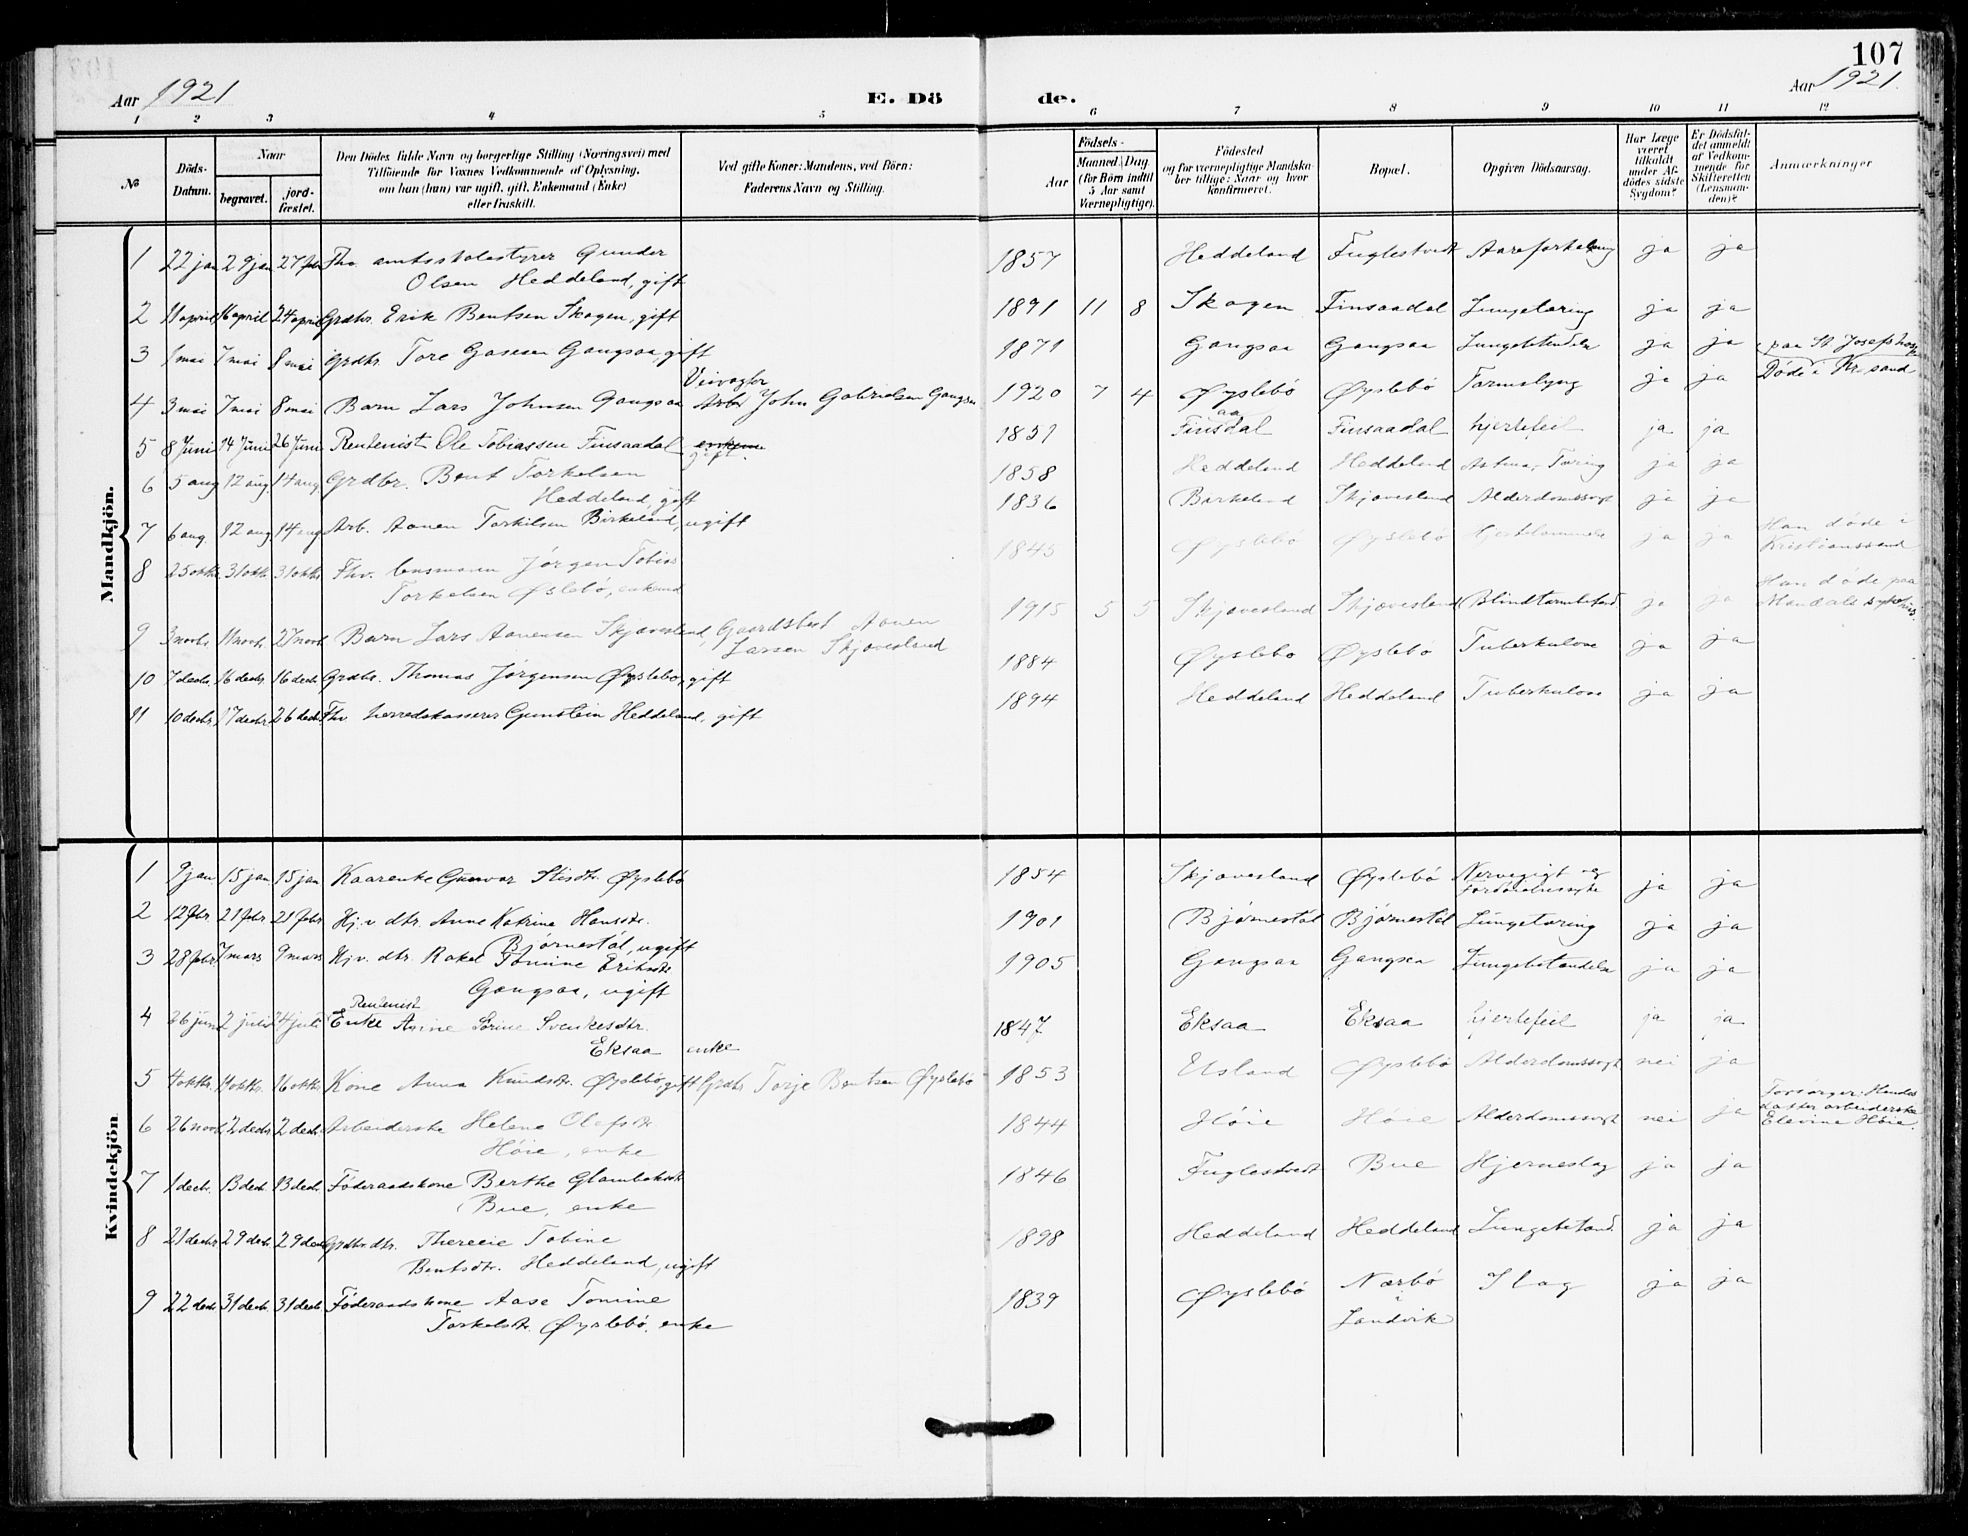 107
Aar 1921
E. Dö
de.
Aar 1921.
1 2 3 4 5 6 7 8 9 10 11 12
№
Döds-Datum.
Naar
begravet.
jord-fæstet.
Den Dödes fulde Navn og borgerlige Stilling (Næringsvei) med
Tilföiende for Voxnes Vedkommende af Oplysning,
om han (hun) var ugift, gift, Enkemand (Enke)
eller fraskilt.
Ved gifte Koner: Mandens, ved Börn:
Faderens Navn og Stilling.
Födsels-
Aar
Maaned. Dag.
(for Börn indtil
5 Aar samt
Værnepligtige).
Födested
og for værnepligtige Mandska-
ber tillige: Naar og hvor
Konfirmeret.
Bopæl.
Opgiven Dödsaarsag.
Har Læge
været
tilkaldt
under Af-
dödes sidste
Sygdom?
Er Dödsfal-
det anmeldt
af Vedkom-
mende for
Skifteretten
(Lensman-
den)?
Anmærkninger
Mandkjön.
1 22 jan 29 jan 27 febr Fhv. amtsskolestyrer Gunder
Olsen Heddeland, gift 1857 Heddeland Fuglestvedt Aareforkalkning ja ja
2 11 april 16 april 24 april Grdbr. Erik Bentsen Skogen, gift 1891 11 8 Skogen Finsaadal Lungetæring ja ja
3 1 mai 7 mai 8 mai Grdbr. Tore Gangsaa, gift 1871 Gangsaa Gangsaa Lungebetendelse ja ja
paa St Josefs hosp
Döde i Kr.sand
4 3 mai 7 mai 8 mai Barn Lars Johnsen Gangsaa
Veivogter
Arb. John Gabrielsen Gangsaa 1920 7 4 Øyslebö Øyslebö Tarmslyng ja ja
5 8 Juni 14 Juni 26 Juni Rentenist Ole Tobiassen Finsaadal enkem
gift. 1851 Finsdal
aa Finsaadal hjertefeil ja ja
6 5 aug 12 aug. 14 aug Grdbr. Bent Torkelsen
Heddeland, gift 1858 Heddeland Heddeland Astma, Tæring ja ja
7 6 aug. 12 aug 14 aug Arb. Aanen Torkilsen Birkeland, ugift 1836 Birkeland Skjævesland Alderdomssvagt ja ja
8 25 oktbr. 31 oktb. 31 oktbr Fhv. lensmann Jörgen Tobias
Torkelsen Øslebö, enkemd 1845 Øyslebö Øyslebö ja ja
Han döde i
Kristianssand
9 3 novbr. 11 novbr. 27 novb Barn Lars Aanensen Skjævesland, Gaardsbest Aanen
Larsen Skjævesland 1915 5 5 Skjævesland Skjævesland Blindtarmbetænd ja ja
Han döde paa
Mandals sykehus.
10 7 decbr. 16 decbr. 16 decb. Grdbr. Thomas Jörgensen Øyslebö, gift 1884 Øyslebö Øyslebö Tuberkulose ja ja
11 10 decbr. 17 decbr. 26 decb. Fhv herredskasserer Gunstein Heddeland, gift 1894 Heddeland Heddeland Tuberkulose ja ja
Kvindekjön
1 9 jan. 15 jan. 15 jan Kaarenke Gunvor Stisdtr. Øyslebö 1854 Skjævesland Øyslebö Nervegigt og ja ja
2 12 febr 21 febr. 21 febr. Hj.v dtr. Anne Katrine Hansdtr.
Björnestöl, ugift 1901 Björnestöl Björnestöl Lungetæring ja ja
3 28 febr. 7 mars 9 mars Hj.v. dtr. Rakel Tomine Eriksdtr
Gangsaa, ugift 1905 Gangsaa Gangsaa Lungebetændelse ja ja
4 26 juni 2 juli 24 juli
Rentenist
Enke Anine Sörine Svenkesdtr.
Eksaa enke 1847 Eksaa Eksaa hjertefeil ja ja
5 4 oktbr. 11 oktbr. 16 oktbr Kone Anna Knudsdtr. Øyslebö, gift Grdbr Torje Bentsen Øyslebö 1853 Usland Øyslebö Alderdomssvagt nei ja
6 26 novb. 2 decbr 2 decb. Arbeiderske Helene Olufsdtr
Höie, enke 1844 Höie Höie Alderdomssvagt nei ja
Forsörger: Hendes
datter arbeiderske
Elevine Höie.
7 1 decb. 13 decb. 13 decb. Föderaadskone Berthe Glambeksdtr
Bue, enke 1846 Fuglestvedt Bue Hjerneslag ja ja
8 21 decbr 29 decb. 29 decb. Grdbr.dtr. Therecie Tobine
Bentsdtr. Heddeland, ugift 1898 Heddeland Heddeland Lungebetænd. ja ja
9 22 decb 31 decb. 31 decb. Föderaadskone Aase Tomine
Torkelsdtr. Øyslebö, enke 1839 Øyslebö Nærbö
i
Landvik Slag ja ja